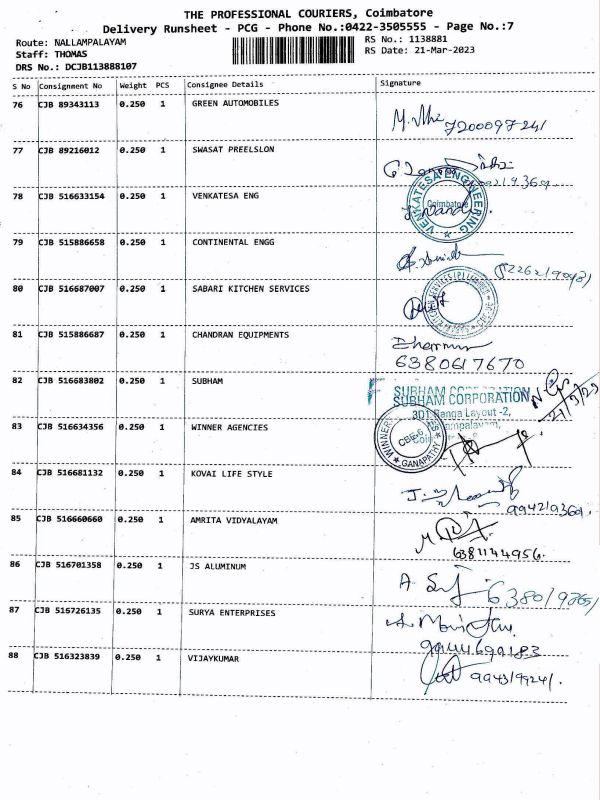 THE PROFESSIONAL COURIERS, Coimbatore
Delivery Runsheet - PCG - Phone No.:0422-3505555 - Page No.:7
Route: NALLAMPALAYAM
RS No.: 1138881
Staff: THOMAS
RS Date: 21-Mar-2023
DRS No.: DCJB113888107
S No Consignment No Weight PCS Consignee Details Signature
76 CJB 89343113 0.250 1 GREEN AUTOMOBILES
7200097241
77 CJB 89216012 0.250 1 SWASAT PREELSLON
78 CJB 516633154 0.250 1 VENKATESA ENG
VENKATESA ENGINEERING
Coimbatore
79 CJB 515886658 0.250 1 CONTINENTAL ENGG
80 CJB 516687007 0.250 1 SABARI KITCHEN SERVICES
81 CJB 515886687 0.250 1 CHANDRAN EQUIPMENTS
6380617670
82 CJB 516683802 0.250 1 SUBHAM
SUBHAM CORPORATION
SUBHAM CORPORATION
301 Ganga Layout -2,
21/3/23
83 CJB 516634356 0.250 1 WINNER AGENCIES
WINNERS
CBE-6
GANAPATHY
84 CJB 516681132 0.250 1 KOVAI LIFE STYLE
85 CJB 516660660 0.250 1 AMRITA VIDYALAYAM
6381144956.
86 CJB 516701358 0.250 1 JS ALUMINUM
87 CJB 516726135 0.250 1 SURYA ENTERPRISES
88 CJB 516323839 0.250 1 VIJAYKUMAR